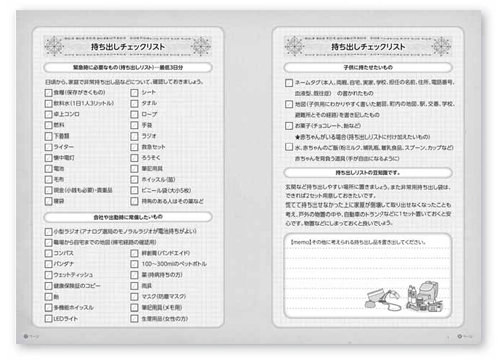 持ち出しチェックリスト
緊急時に必要なもの(持ち出しリスト)…最低3日分
日頃から、家庭で非常持ち出し品などについて、確認しておきましょう。
食糧(保存がきくもの)
シート
飲料水(1日1人3リットル)
タオル
卓上コンロ
ロープ
燃料
手袋
下着類
ラジオ
ライター
救急セット
懐中電灯
ろうそく
電池
筆記用具
毛布
ホイッスル(笛)
現金(小銭も必要)・貴重品
ビニール袋(大小5枚)
寝袋
持病のある人はその薬など
会社や出勤時に常備したいもの
小型ラジオ(アナログ選局のモノラルラジオが電池持ちがよい)
職場から自宅までの地図(帰宅経路の確認用)
コンパス
絆創膏(バンドエイド)
バンダナ
100〜300mlのペットボトル
ウェットティッシュ
薬(持病持ちの方)
健康保険証のコピー
雨具
飴
マスク(防塵マスク)
多機能ホイッスル
筆記用具(メモ用)
LEDライト
生理用品(女性の方)
持ち出しチェックリスト
子供に持たせたいもの
ネームタグ(本人、両親、自宅、実家、学校、担任の名前、住所、電話番号、
血液型、既往歴) の書かれたもの
地図(子供用にわかりやすく書いた範囲、町内の地図、駅、交番、学校、
避難所とその経路)を書き記したもの
お菓子(チョコレート、飴など)
★赤ちゃんがいる場合(持ち出しリストに付け加えたいもの)
水、赤ちゃんのご飯(粉ミルク、哺乳瓶、離乳食品、スプーン、カップなど)
赤ちゃんを背負う道具(手が自由になるように)
持ち出しリストの豆知識です。
玄関など持ち出しやすい場所に置きましょう、また非常用持ち出し袋は、
できれば2セット用意しておきたいです。
慌てて持ち出せなかった上に家屋が倒壊して取り出せなくなったことも
考え、戸外の物置の中や、自動車のトランクなどに1セット置いておくと安
心です。物置などにしまっておくと良いでしょう。
【memo】その他に考えられる持ち出し品を書き出してください。
ページ
ページ